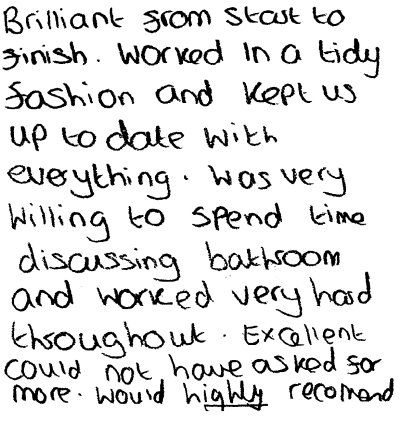 Brilliant from start to
finish. Worked in a tidy
fashion and kept us
up to date with
everything. Was very
willing to spend time
discussing bathroom
and worked very hard
throughout. Excellent
could not have asked for
more. Would highly recomend